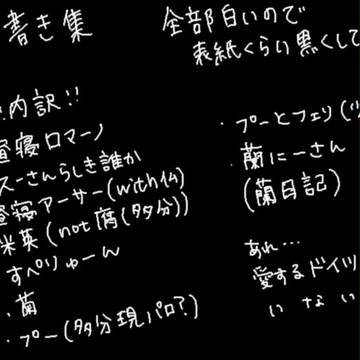 書き集
全部白いので
表紙くらい黒くして
内訳!!
昼寝ロマーノ
スーさんらしき誰か
昼寝アーサー(with仏)
米英(not 腐(多分))
すぺりゅーん
・菊
・プー(多分現パロ?)
・プーとフェリ(
・蘭にーさん
(蘭日記)
あれ…
愛するドイツ
いない